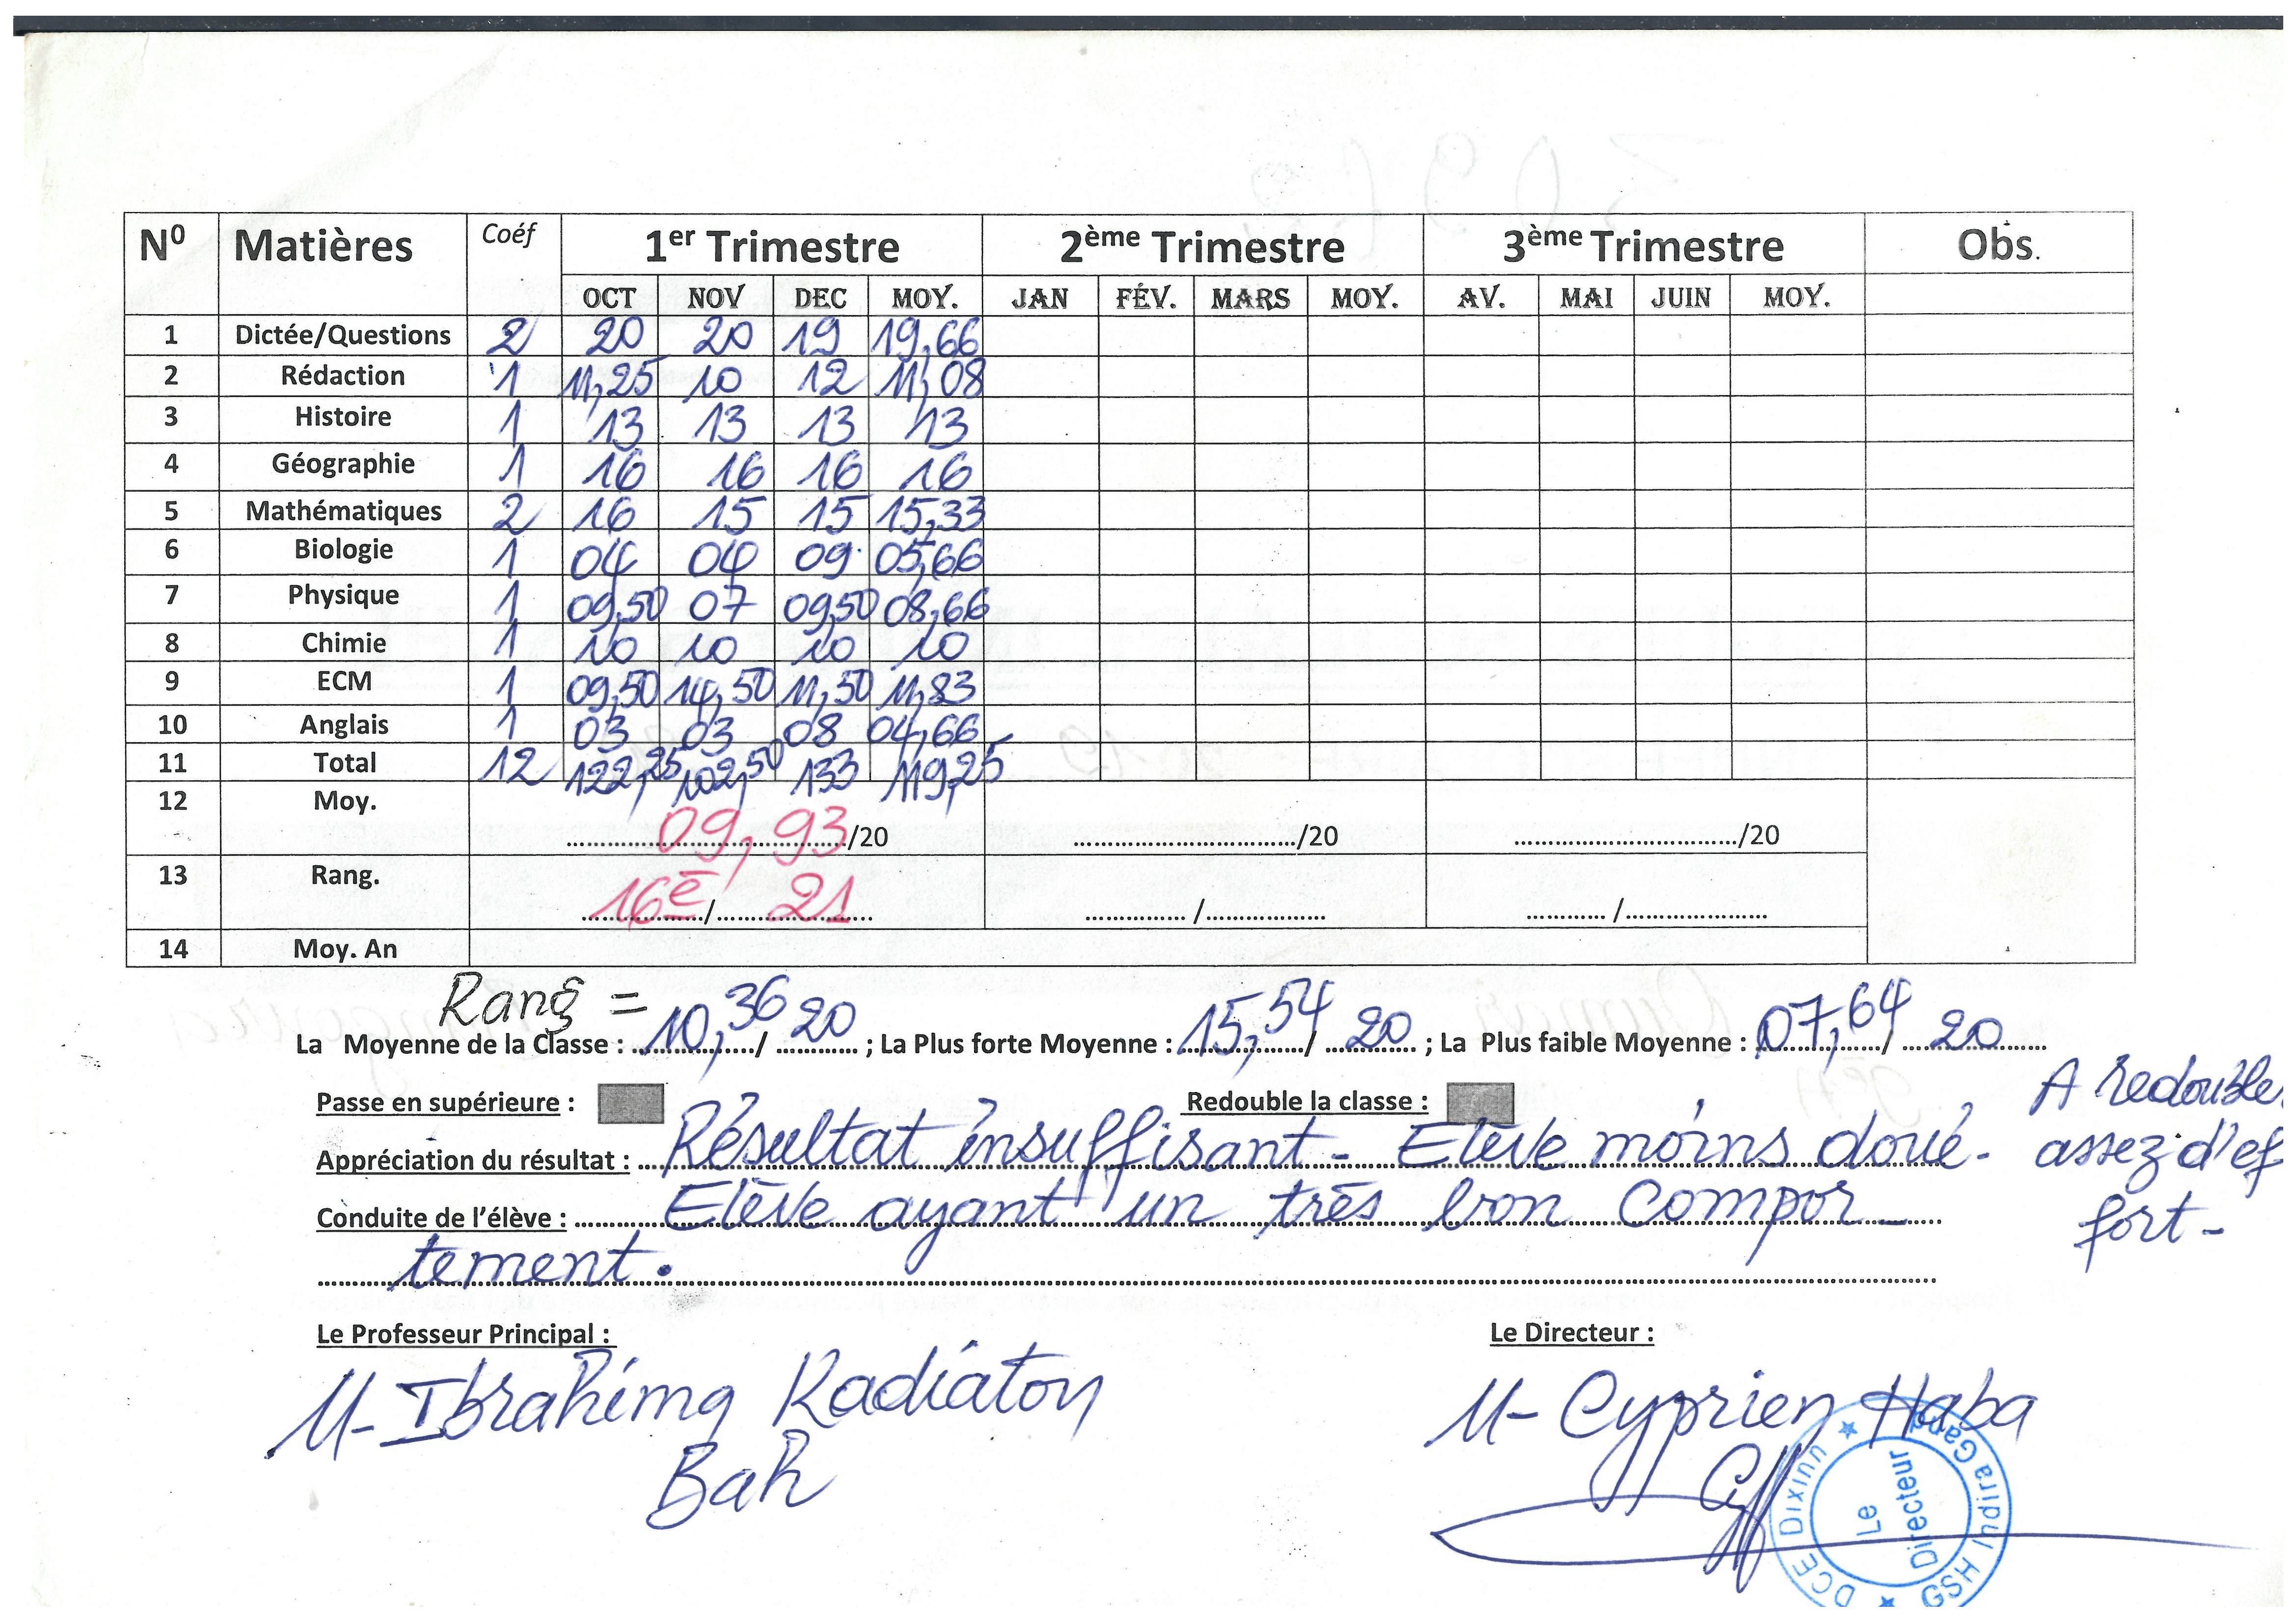 N⁰ Matières Coéf 1er Trimestre 2ème Trimestre 3ème Trimestre Obs.
OCT NOV DEC MOY. JAN FÉV. MARS MOY. AV. MAI JUIN MOY.
1 Dictée/Questions 2 20 20 19 19,66
2 Rédaction 1 11,25 10 12 11,08
3 Histoire 1 13 13 13 13
4 Géographie 1 16 16 16 16
5 Mathématiques 2 16 15 15 15,33
6 Biologie 1 04 04 09 05,66
7 Physique 1 09,50 07 09,50 08,66
8 Chimie 1 10 10 10 10
9 ECM 1 09,50 14,50 11,50 11,83
10 Anglais 1 03 03 08 04,66
11 Total 12 122,25 102,50 133 119,25
12 Moy. 09,93/20 ................/20 ................/20
13 Rang. 16è / 21 ........ / ........ ........ / ........
14 Moy. An
Rang =
La Moyenne de la Classe : 10,36 / 20 ; La Plus forte Moyenne : 15,54 / 20 ; La Plus faible Moyenne : 07,64 / 20
Passe en supérieure : Redouble la classe :
Appréciation du résultat : Résultat insuffisant - Elève moins doué. A redouble
assez d'ef
fort -
Conduite de l'élève : Elève ayant un très bon compor-
tement.
Le Professeur Principal : Le Directeur :
M- Ibrahima Kadiatou M- Cyprien Haba
Bah
DCE Dixinn ★ GSH Indira Gand
Le Directeur